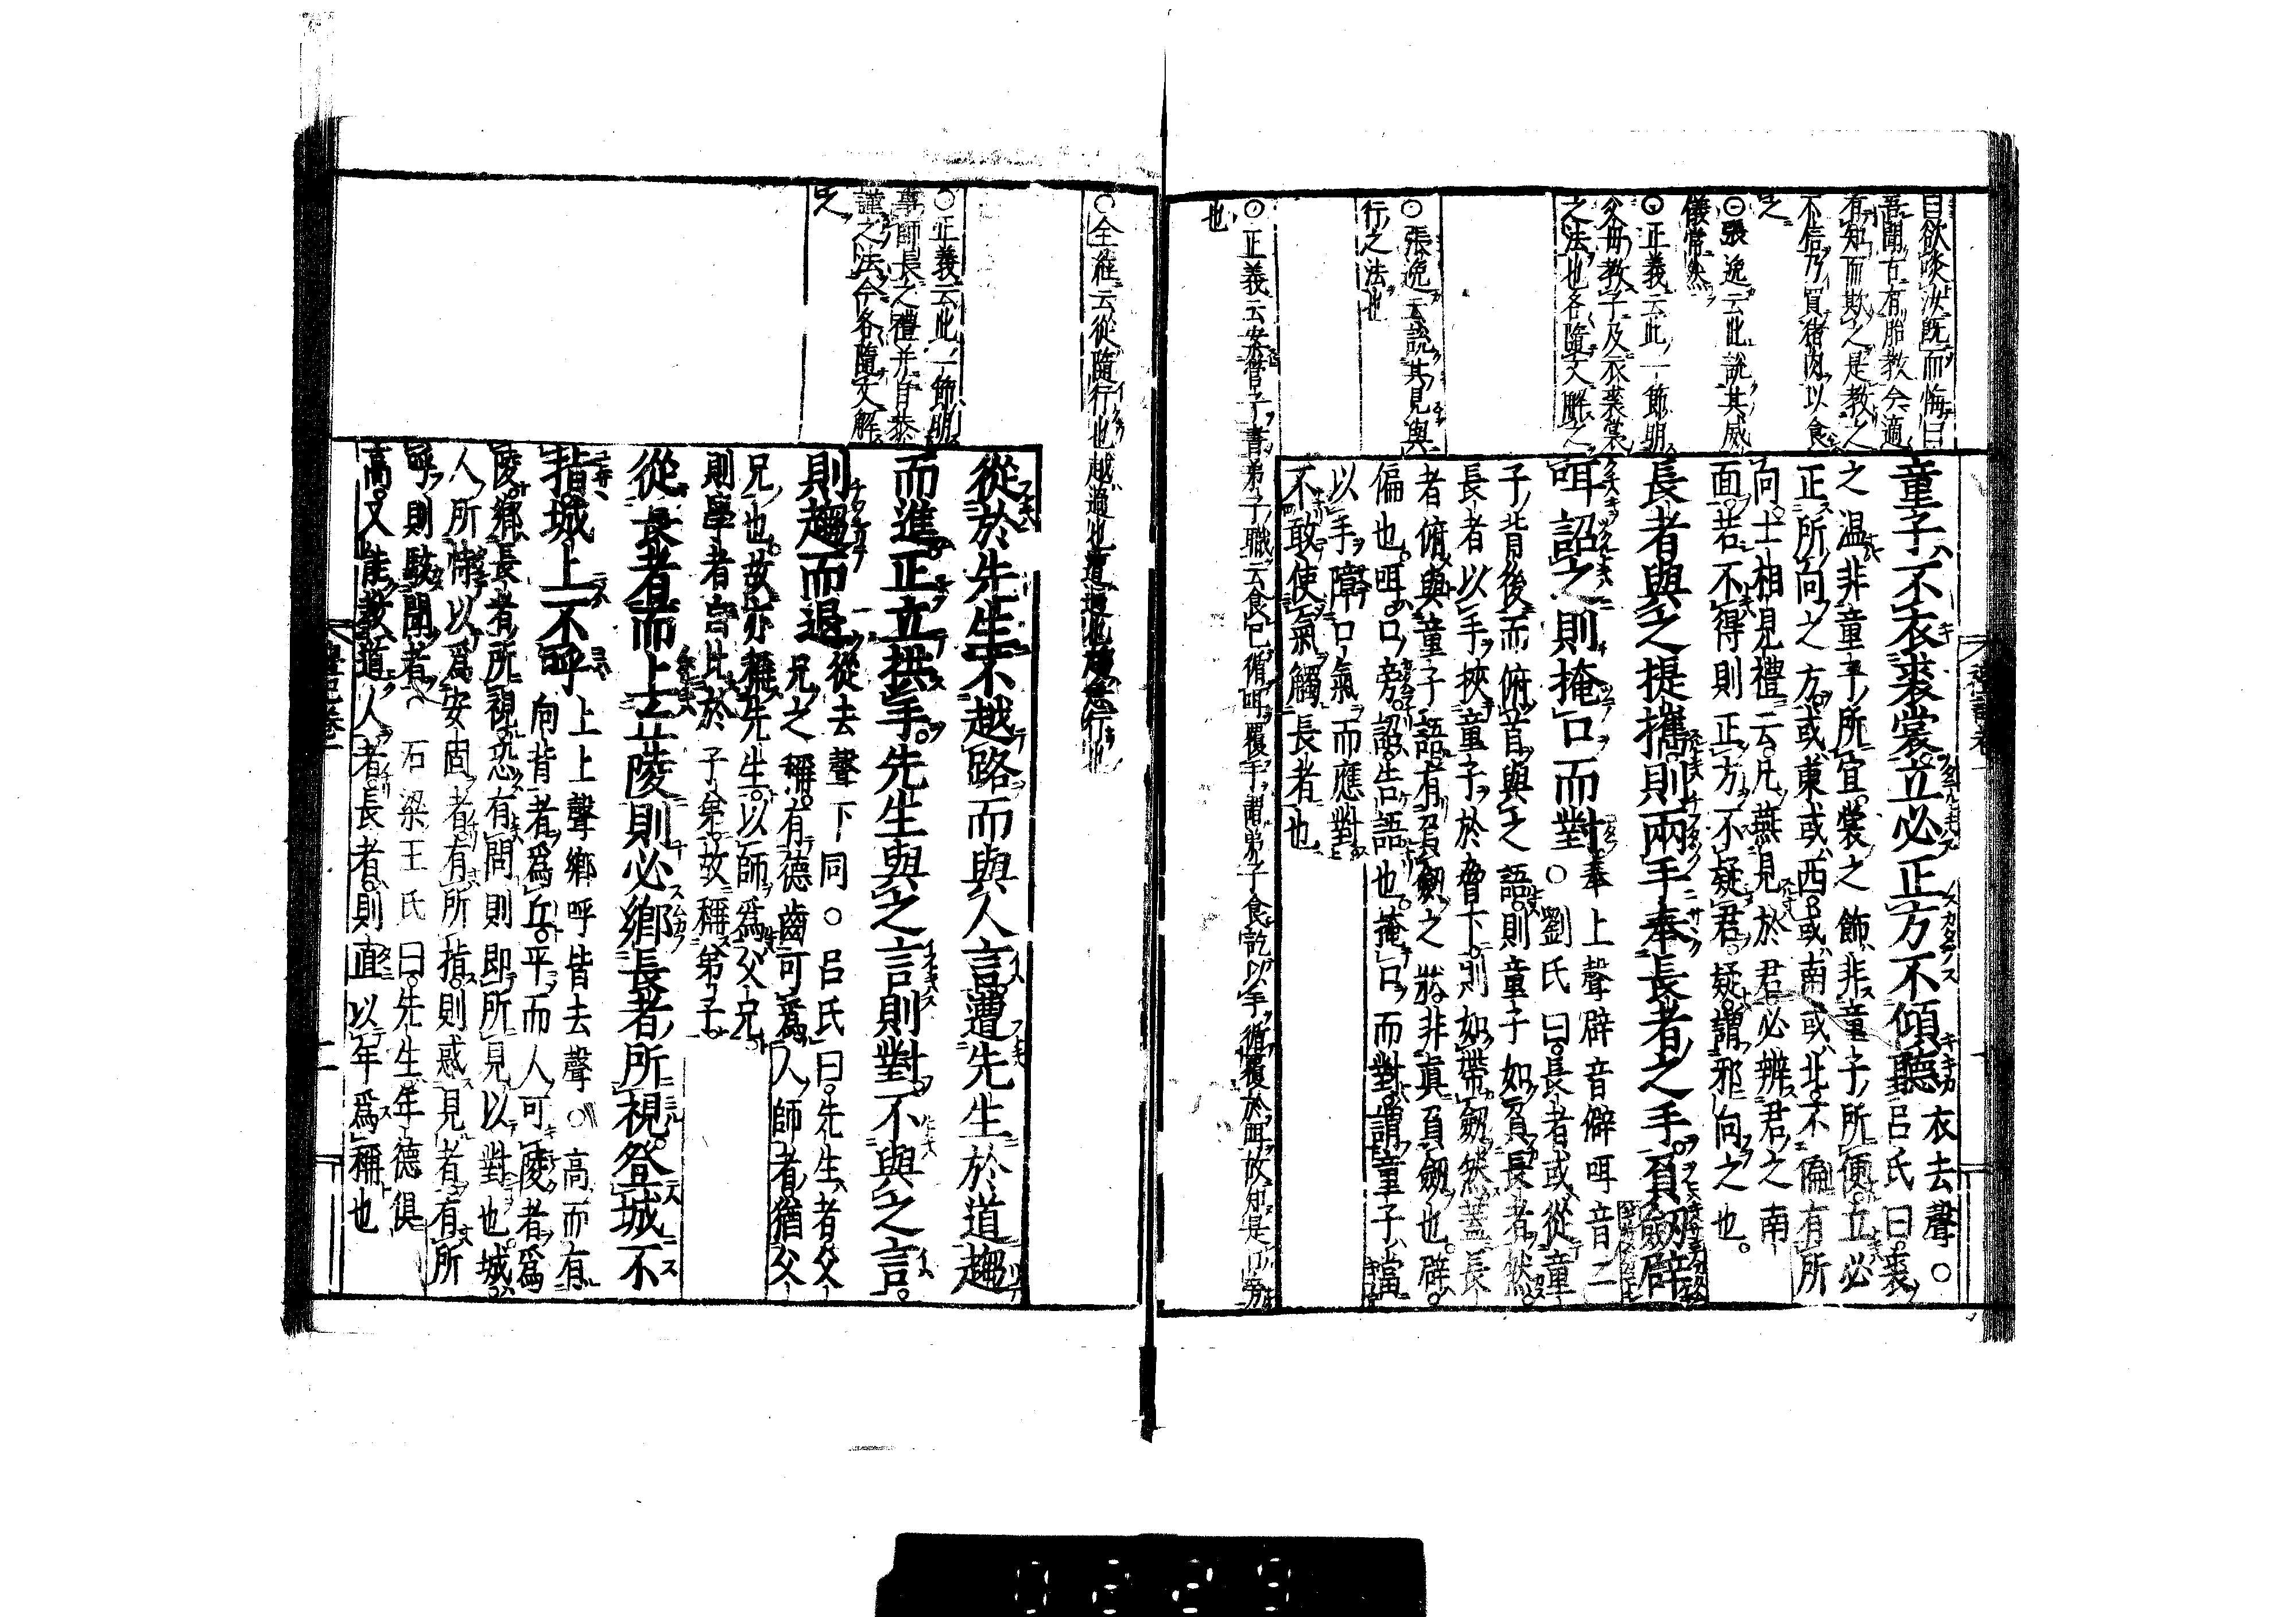 目欲啖汝既而悔曰
吾聞古有胎教今適
有知而欺之是教之
不信乃買猪肉以食
之
○張逸云此説其威
儀常然
○正義云此一節明
父母教子及衣裘裳
之法也各隨文解之
○張逸云説其見與
行之法也
○正義云案管子書弟子職云食已循咡覆手謂弟子食訖以手循覆於咡故知是口旁
也
童子不衣裘裳立必正方不傾聽衣去聲○
呂氏曰裘
之温非童子所宜裳之飾非童子所便立必
正所向之方或東或西或南或北不偏有所
向士相見禮云凡燕見於君必辨君之南
面若不得則正方不疑君疑謂邪向之也
長者與之提攜則兩手奉長者之手負劒辟
咡詔之則掩口而對奉上聲辟音僻咡音二
○劉氏曰長者或從童
子背後而俯首與之語則童子如負長者然
長者以手挾童子於脅下則如帶劒然蓋長
者俯與童子語有負劒之狀非真負劒也辟
偏也咡口旁詔告語也掩口而對謂童子當
以手障口氣而應對
不敢使氣觸長者也
禮記卷一
○全經云從隨行也越過也遭逢也趨急行也
○正義云此一節明
事師長之禮并自恭
謹之法今各隨文解
之
從於先生不越路而與人言遭先生於道趨
而進正立拱手先生與之言則對不與之言
則趨而退從去聲下同○呂氏曰先生者父
兄之稱有德齒可為人師者猶父
兄也故亦稱先生以師為父兄
則學者自比於子弟故稱弟子
從長者而上丘陵則必鄉長者所視登城不
指城上不呼上上聲鄉呼皆去聲○高而有
向背者為丘平而人可陵者為
陵鄉長者所視恐有問則即所見以對也城
人所恃以為安固者有所指則惑見者有所
呼則駭聞者○石梁王氏曰先生年德俱
高又能教道人者長者則直以年為稱也
禮記卷一
二
0229